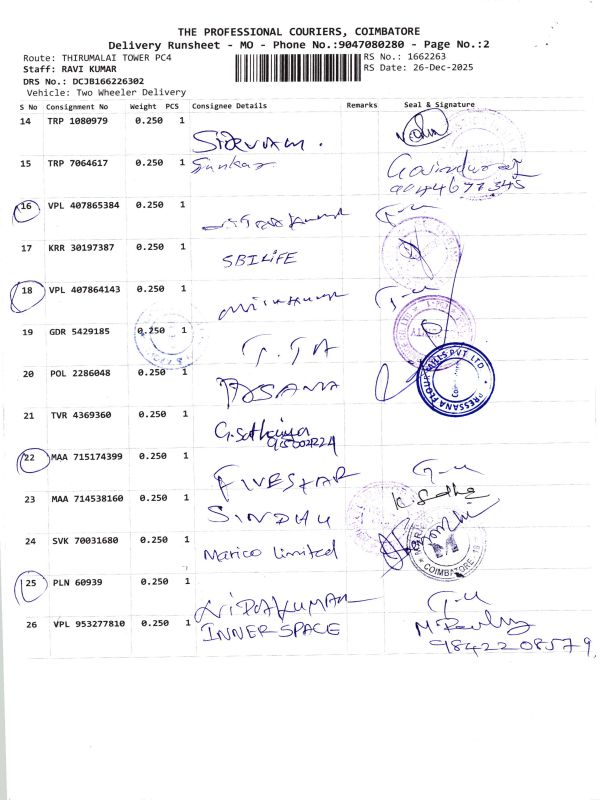 THE PROFESSIONAL COURIERS, COIMBATORE
Delivery Runsheet - MO - Phone No.:9047080280 - Page No.:2
Route: THIRUMALAI TOWER PC4 RS No.: 1662263
Staff: RAVI KUMAR RS Date: 26-Dec-2025
DRS No.: DCJB166226302
Vehicle: Two Wheeler Delivery
S No Consignment No Weight PCS Consignee Details Remarks Seal & Signature
14 TRP 1080979 0.250 1
15 TRP 7064617 0.250 1 Sankar
9044677345
16 VPL 407865384 0.250 1
17 KRR 30197387 0.250 1
SBI LIFE
18 VPL 407864143 0.250 1
19 GDR 5429185 0.250 1
20 POL 2286048 0.250 1 PRESSANA FLOUR MILLS PVT LTD
21 TVR 4369360 0.250 1
G. Sathiya
22 MAA 715174399 0.250 1
FIVESTAR
23 MAA 714538160 0.250 1 K. Sadha
SINDHU
24 SVK 70031680 0.250 1
Marico Limited COIMBATORE
25 PLN 60939 0.250 1
26 VPL 953277810 0.250 1 INNERSPACE
9842208579